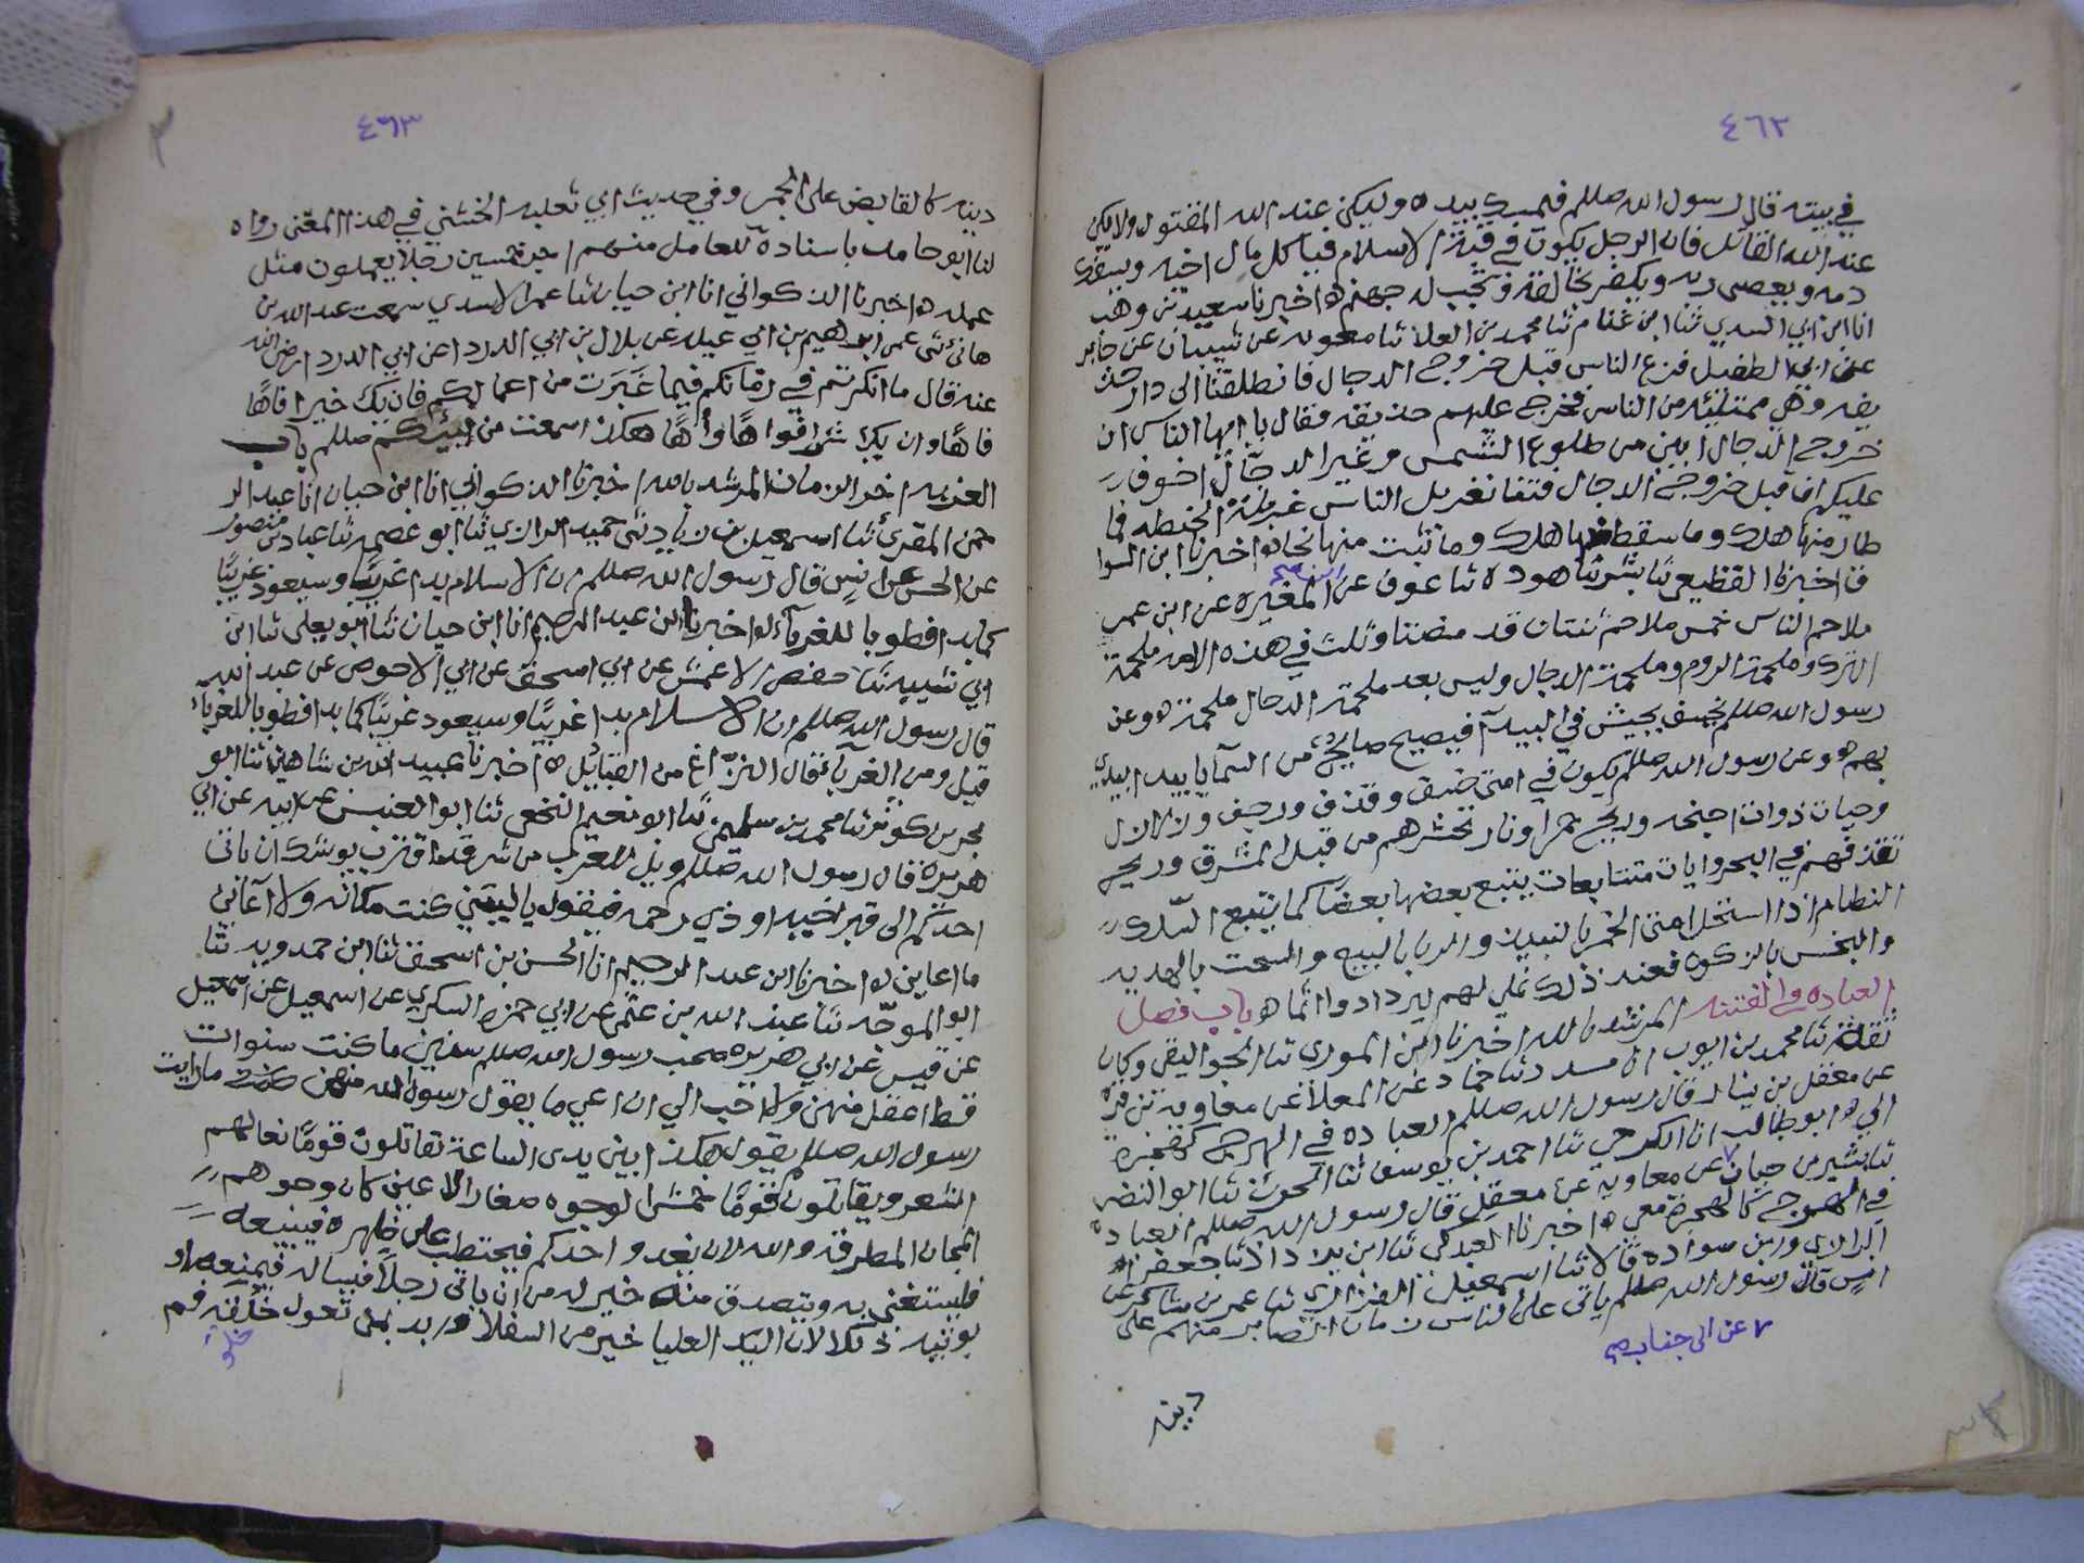 ٤٦٢
في بيته قال رسول الله صللم فليمسك بيده وليكن عند الله المقتول ولا يكن
عند الله القاتل فان الرجل يكون في قبة الاسلام فياكل مال اخيه ويسفك
دمه ويعصى ربه ويكفر بخالقه فتجب له جهنم ه اخبرنا سعيد بن وهب
انا ابن ابي السدي ثنا ابن غنام ثنا محمد بن العلا ثنا معويه عن شيبان عن جابر
عن ابي الطفيل فزع الناس قبل خروج الدجال فانطلقنا الى دار حذ
يفه وهي ممتلئه من الناس فخرج عليهم حذيفه فقال يا ايها الناس ان
خروج الدجال ابين من طلوع الشمس وغير الدجال اخوف
عليكم ان قبل خروج الدجال فتنا تغربل الناس غربلة الحنطه فما
طار منها هلك وما سقط منها هلك وما ثبت منها نجا ه اخبرنا ابن السوا
ق اخبرنا القطيعي ثنا بشر ثنا هوده ثنا عوف عن ابي المغيره عن ابن عمر
ملاحم الناس خمس ملاحم ثنتان قد مضتا وثلث في هذه الامه ملحمة
الترك وملحمة الروم وملحمة الدجال وليس بعد ملحمة الدجال ملحمة ه وعن
رسول الله صللم يخسف بجيش في البيدآ فيصيح صايح من السمآ يا بيد ابيدي
بهم ه وعن رسول الله صللم يكون في امتى خسف وقذف ورجف وزلازل
وحيات ذوات اجنحه وريح حمرا ونار تحشرهم من قبل المشرق وريح
تقذفهم في البحر وايات متتابعات يتبع بعضها بعضا كما يتبع السلك
النظام اذا استحل امتى الخمر بالنبيذ والربا بالبيع والسحت بالهديه
والبخس بالزكوه فعند ذلك نملي لهم ليزدادوا اثما ه باب فضل
العباده في الفتنه المرشد بالله اخبرنا ابن السوري ثنا الجواليقى وكان
ثقة ثنا محمد بن ايوب انا مسدد ثنا حماد عن المعلا عن معاوية بن قرة
عن معقل بن يسار قال رسول الله صللم العباده في الهرج كهجرة
الي ه ابو طالب انا الكرخي ثنا احمد بن يوسف ثنا الحوث ثنا ابو النضر
ثنا بشير بن حيان عن معاويه عن معقل قال رسول الله صللم العباده
في الهرج كالهجرة معي ه اخبرنا العبدكى ثنا ابن يزداذ ثنا جعفر
الرازي وزين سواده قالا ثنا اسمعيل الفزاري ثنا عمر بن شاكر عن
انس قال رسول الله صللم ياتى على الناس زمان الصابر منهم على
دينه
٤٦٣
دينه كالقابض على الجمر وفي حديث ابي ثعلبه الخشني في هذا المعنى رواه
لنا ابو حامد باسناده للعامل منهم اجر خمسين رجلا يعملون مثل
عمله ه اخبرنا الذكواني انا ابن حيان ثنا عمر الاسدي سمعت عبد الله بن
هانئ ثنى عمى ابرهيم بن ابي عبله عن بلال بن ابي الدردا عن ابي الدردا رضى الله
عنه قال ما انكرتم في زمانكم فيما غيرت من اعمالكم فان يك خيرا فاهًا
فاهًا وان يك شرا فواهًا وأهًا هكذا سمعت من نبيئكم صللم باب
الغربه اخر الزمان المرشد بالله اخبرنا الذكواني انا ابن حيان انا عبد الر
حمن المقرئ ثنا اسمعيل بن زياد ثنى حميد الرازي ثنا ابو عصمه ثنا عباد بن منصور
عن الحسن عن انس قال رسول الله صللم ان الاسلام بدا غريبًا وسيعود غريبًا
كما بدا فطوبا للغربآ ه اخبرنا ابن عبد الرحيم انا ابن حيان ثنا ابو يعلى ثنا ابن
ابي شيبه ثنا حفص الاعمش عن ابي اسحق عن ابي الاحوص عن عبد الله
قال رسول الله صللم ان الاسلام بدا غريبًا وسيعود غريبًا كما بدا فطوبا للغربا
قيل ومن الغربآ قال النزاع من القبائل ه اخبرنا عبيد الله بن شاهين ثنا ابو
بحر بن كوثر ثنا محمد بن سليمى ثنا ابو نعيم النخعى ثنا ابو العنبس عن ابيه عن ابي
هريره قال رسول الله صللم ويل للعرب من شر قد اقترب يوشك ان ياتى
احدكم الى قبر اخيه او ذي رحمه فيقول يا ليتني كنت مكانه ولا اعاني
ما اعاين ه اخبرنا ابن عبد الرحيم انا الحسن بن اسحق ثنا ابن حمدويه ثنا
ابو الموجّه ثنا عبد الله بن عثمن عن ابي حمزه السكري عن اسمعيل عن اسمعيل
عن قيس عن ابي هريره صحب رسول الله صللم سنين ما كنت سنوات
قط اعقل منهن ولا احب الي ان اعي ما يقول رسول الله منهن ما رايت
رسول الله صللم يقول هكذا بين يدى الساعة تقاتلون قومًا نعالهم
الشعر ويقاتلون قومًا خمش الوجوه صغار الاعين كان وجوههم
المجان المطرقه والله لان يغدو احدكم فيحتطب على ظهره فيبيعه
فليستغنى به ويتصدق منه خير له من ان ياتى رجلا فيساله فيمنعه او
يوتيه ذلك لان اليد العليا خير من السفلا وبد بمن تعول خلفه فم